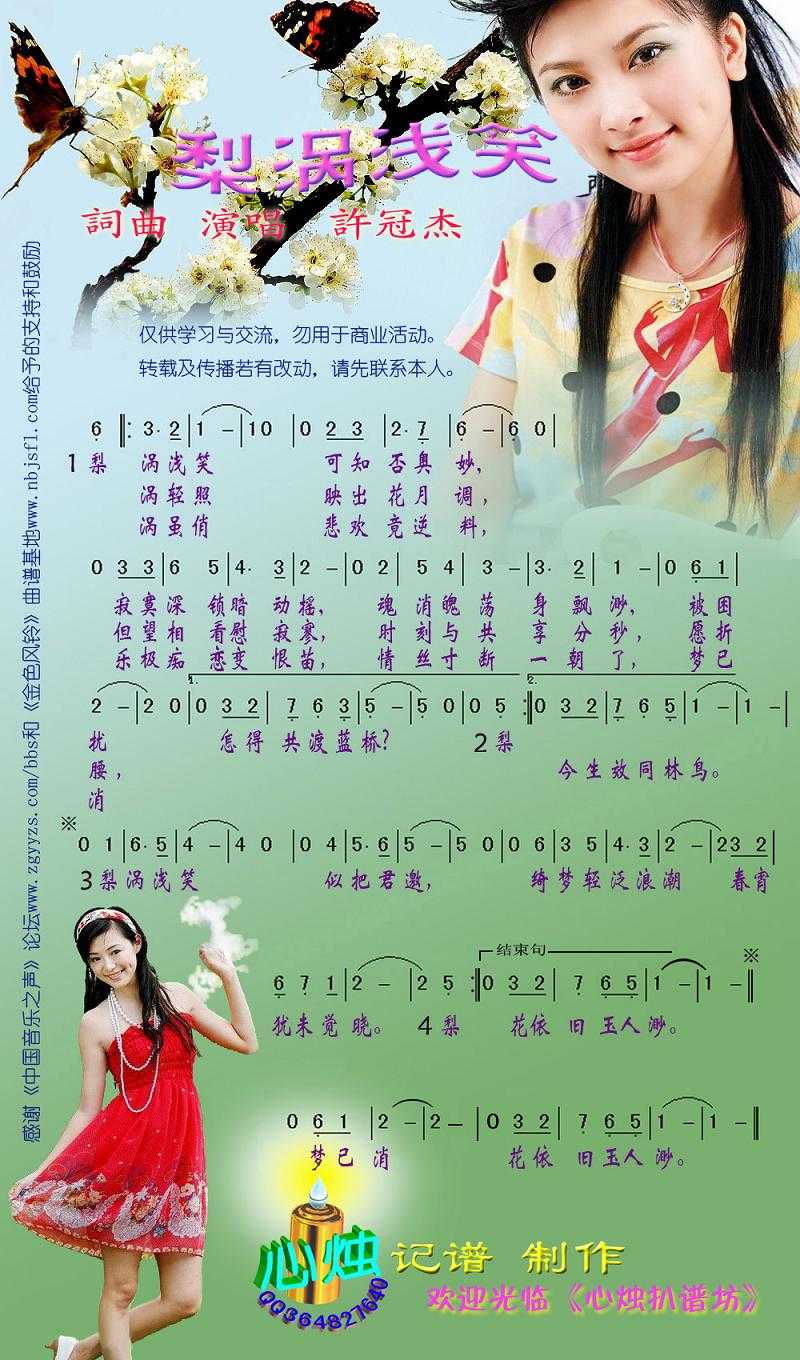 梨涡浅笑
詞曲 演唱 許冠杰
仅供学习与交流，勿用于商业活动。
转载及传播若有改动，请先联系本人。
6 ‖: 3· 2 | 1 - | 1 0 | 0 2 3 | 2· 7 | 6 - | 6 0 |
1 梨 涡浅笑 可知 否奥 妙，
涡轻照 映出 花月 调，
涡虽俏 悲欢 竟逆 料，
0 3 3 | 6 5 | 4· 3 | 2 - | 0 2 | 5 4 | 3 - | 3· 2 | 1 - | 0 6 1 |
寂寞深 锁暗 动摇， 魂 消魄 荡 身 飘 渺， 被困
但望相 看慰 寂寥， 时 刻与 共 享 分 秒， 愿折
乐极痴 恋变 恨苗， 情 丝寸 断 一 朝 了， 梦已
1. 2.
2 - | 2 0 | 0 3 2 | 7 6 3 | 5 - | 5 0 | 0 5 :‖ 0 3 2 | 7 6 5 | 1 - | 1 - |
扰 怎得 共渡蓝桥? 2 梨
腰， 今生效同林鸟。
消
※
0 1 | 6· 5 | 4 - | 4 0 | 0 4 | 5· 6 | 5 - | 5 0 | 0 6 | 3 5 | 4· 3 | 2 - | 2 3 2 |
3 梨涡浅笑 似把君邀， 绮梦轻泛浪潮 春宵
结束句 ※
6 7 1 | 2 - | 2 5 :‖ 0 3 2 | 7 6 5 | 1 - | 1 - ‖
犹未觉晓。 4 梨 花依 旧玉人渺。
0 6 1 | 2 - | 2 - | 0 3 2 | 7 6 5 | 1 - | 1 - ‖
梦已 消 花依 旧玉人渺。
心烛 记谱 制作
QQ364827640
欢迎光临《心烛扒谱坊》
感谢《中国音乐之声》论坛www.zgyyzs.com/bbs和《金色风铃》曲谱基地www.nbjsfl.com给予的支持和鼓励